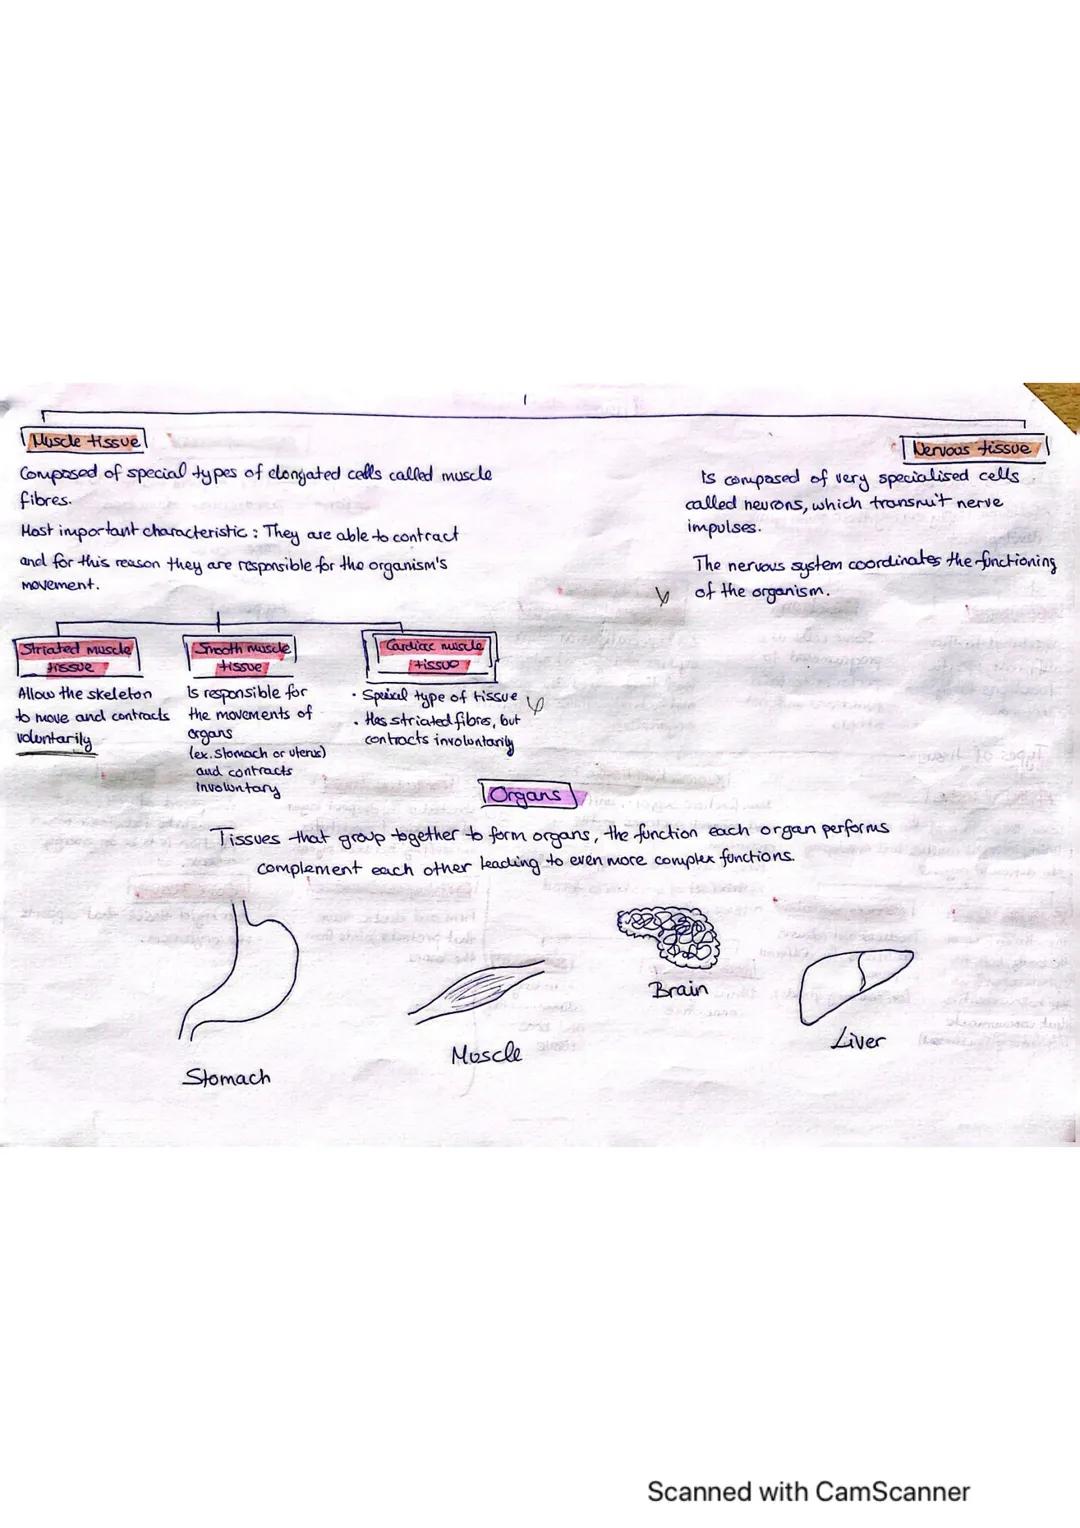 Muscle tissue
Composed of special types of elongated cells called muscle
fibres.
Most important characteristic: They are able to contract
and for this reason they are responsible for the organism's
movement.
Nervous tissue
Is composed of very specialised cells
called neurons, which transmit nerve
impulses.
The nervous system coordinates the functioning
of the organism.
Striated muscle
tissue
Allow the skeleton
to move and contracts
voluntarily
Smooth muscle
tissue
Is responsible for
the movements of
organs
(ex. Stomach or uterus)
and contracts
Involuntary
Cardiac muscle
tissue
· Speical type of tissue
· Has striated fibres, but
contracts involuntarily
Organs
Tissues that group together to form organs, the function each organ performs
complement each other leading to even more complex functions.
Stomach
Muscle
Brain
Liver
Scanned with CamScanner